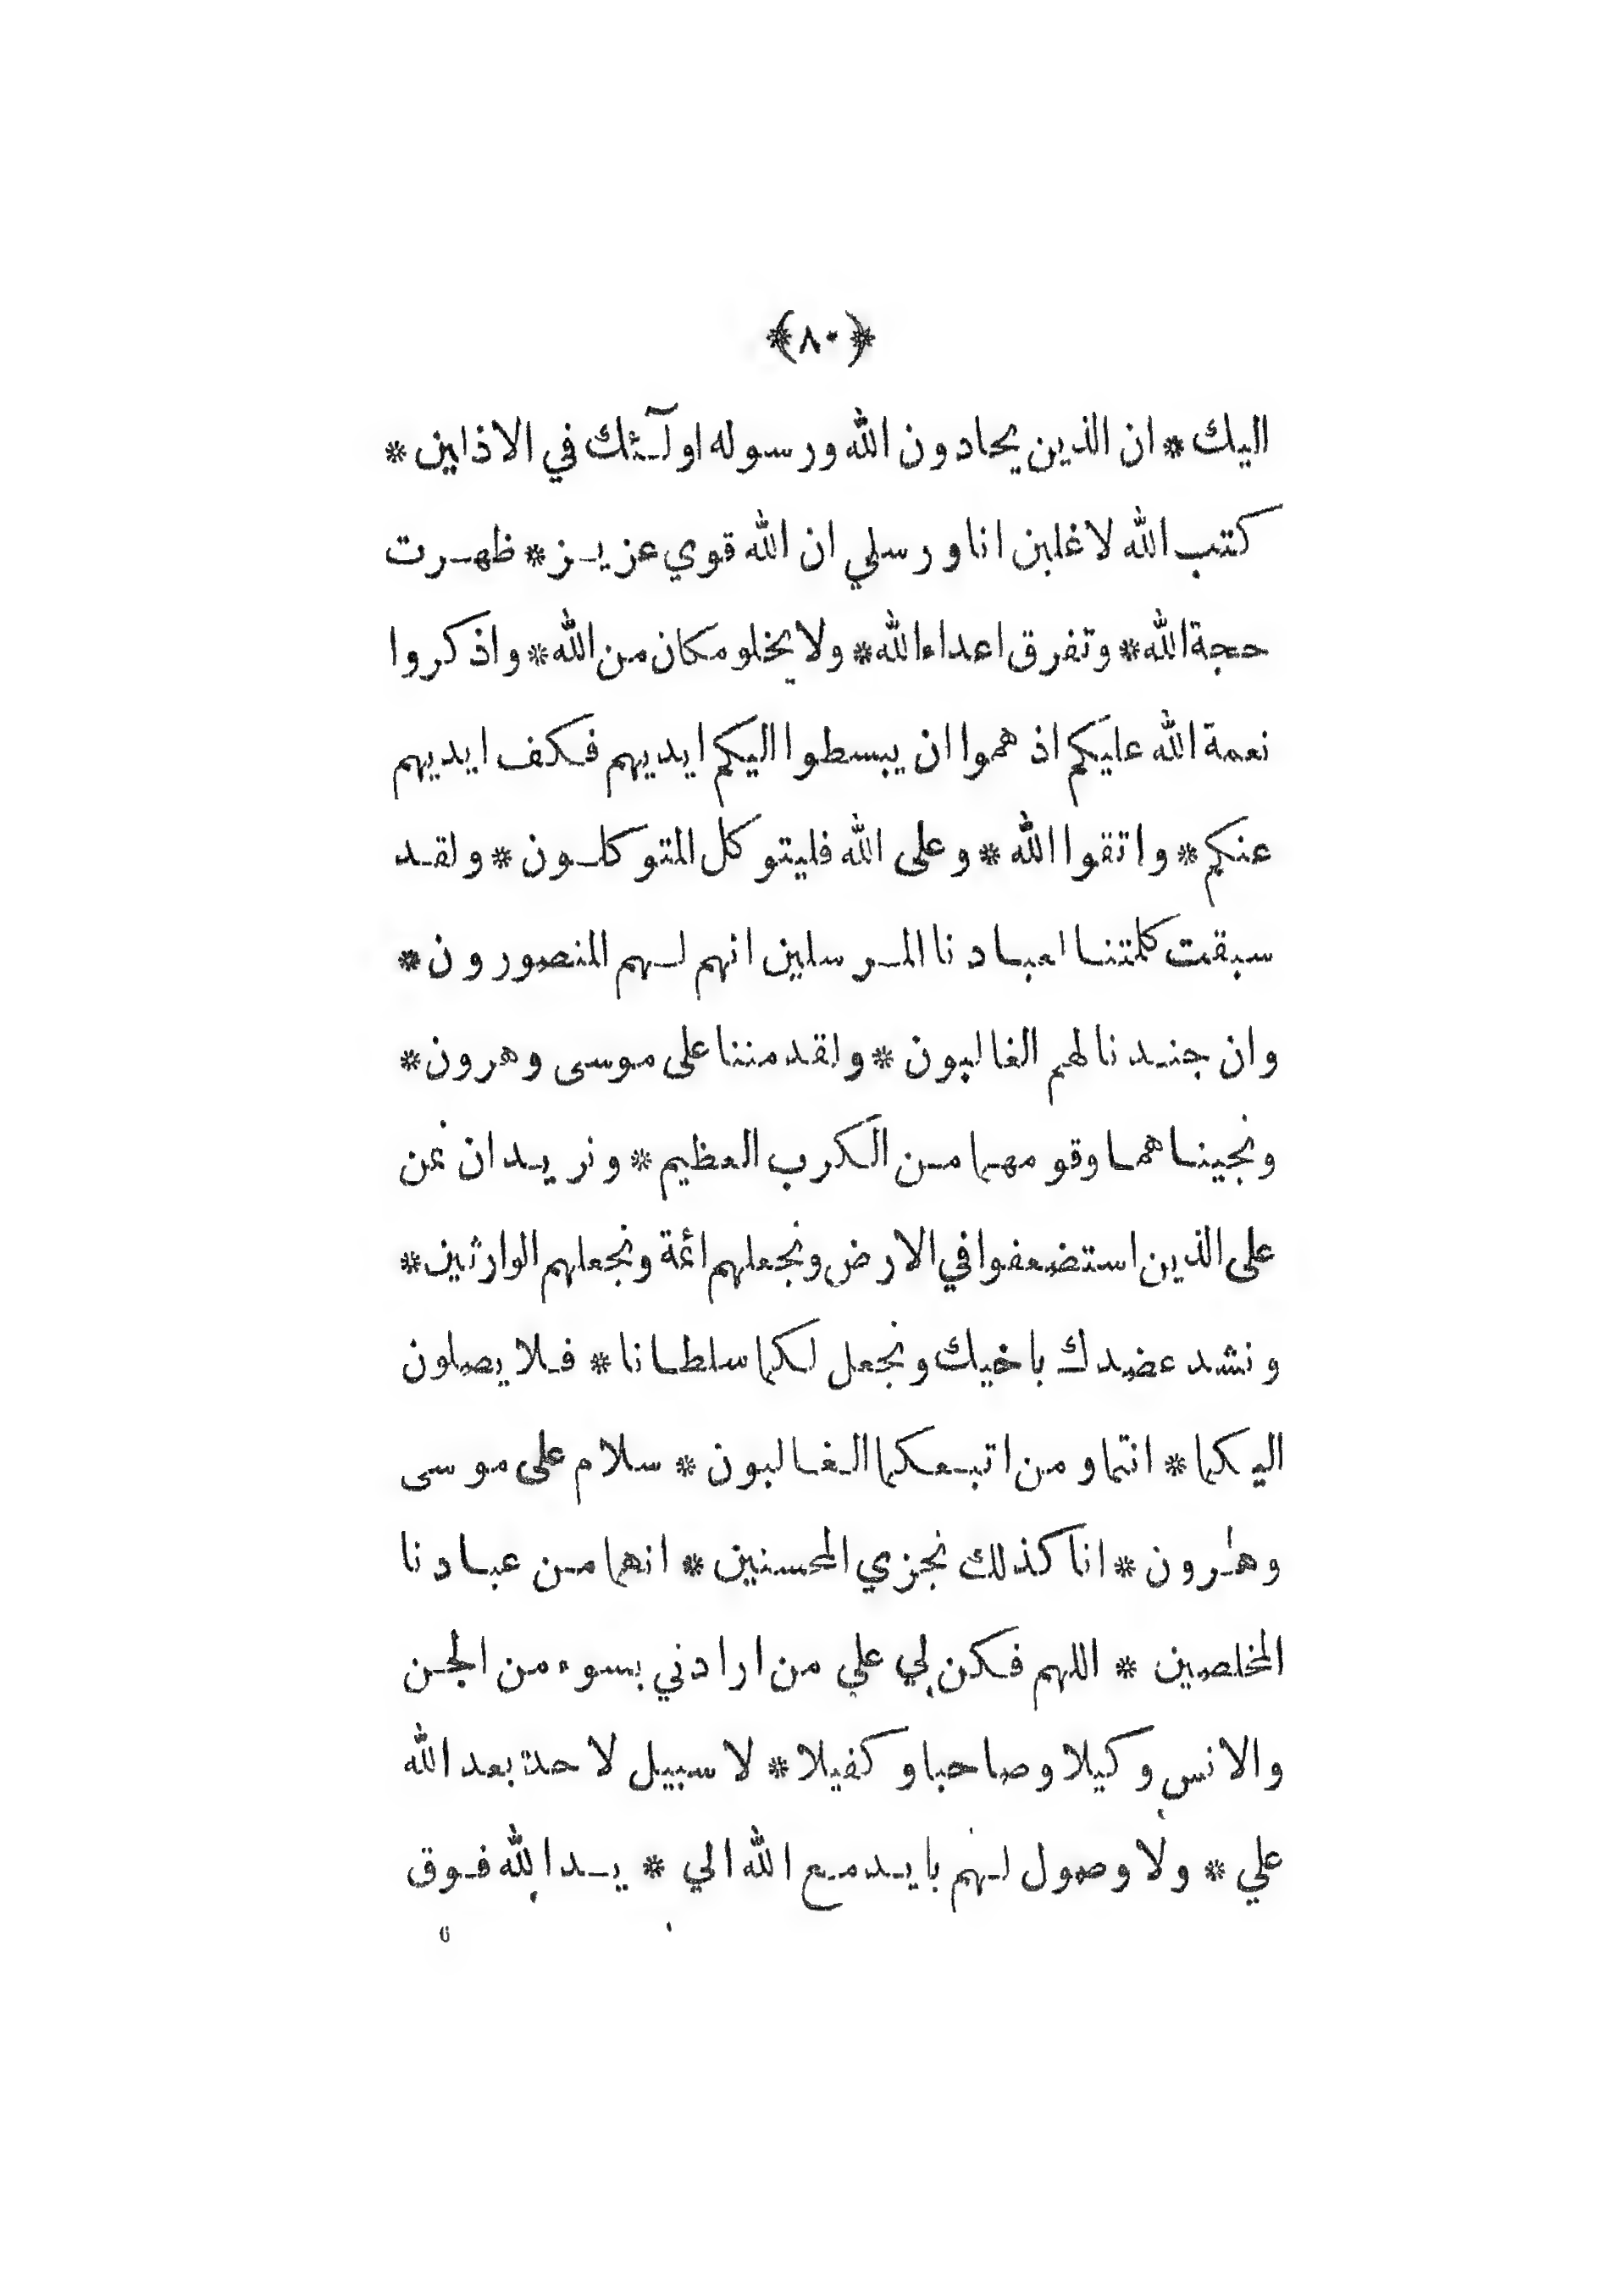 ﴿٨٠﴾
اليك * ان الذين يحادون الله ورسوله اولـٓئك في الاذلين *
كتب الله لاغلبن انا ورسلي ان الله قوي عزيز * ظهرت
حجة الله * وتفرق اعداء الله * ولا يخلو مكان من الله * واذكروا
نعمة الله عليكم اذ هموا ان يبسطوا اليكم ايديهم فكف ايديهم
عنكم * واتقوا الله * وعلى الله فليتوكل المتوكلون * ولقد
سبقت كلمتنا لعبادنا المرسلين انهم لهم المنصورون *
وان جندنا لهم الغالبون * ولقد مننا على موسى وهرون *
ونجيناهما وقومهما من الكرب العظيم * ونريد ان نمن
على الذين استضعفوا في الارض ونجعلهم ائمة ونجعلهم الوارثين *
ونشد عضدك باخيك ونجعل لكما سلطانا * فلا يصلون
اليكما * انتما ومن اتبعكما الغالبون * سلام على موسى
وهٰرون * انا كذلك نجزي المحسنين * انهما من عبادنا
المخلصين * اللهم فكن لي علي من ارادني بسوء من الجن
والانس وكيلا وصاحبا وكفيلا * لا سبيل لاحد بعد الله
علي * ولا وصول لهم بايد مع الله الي * يد الله فوق